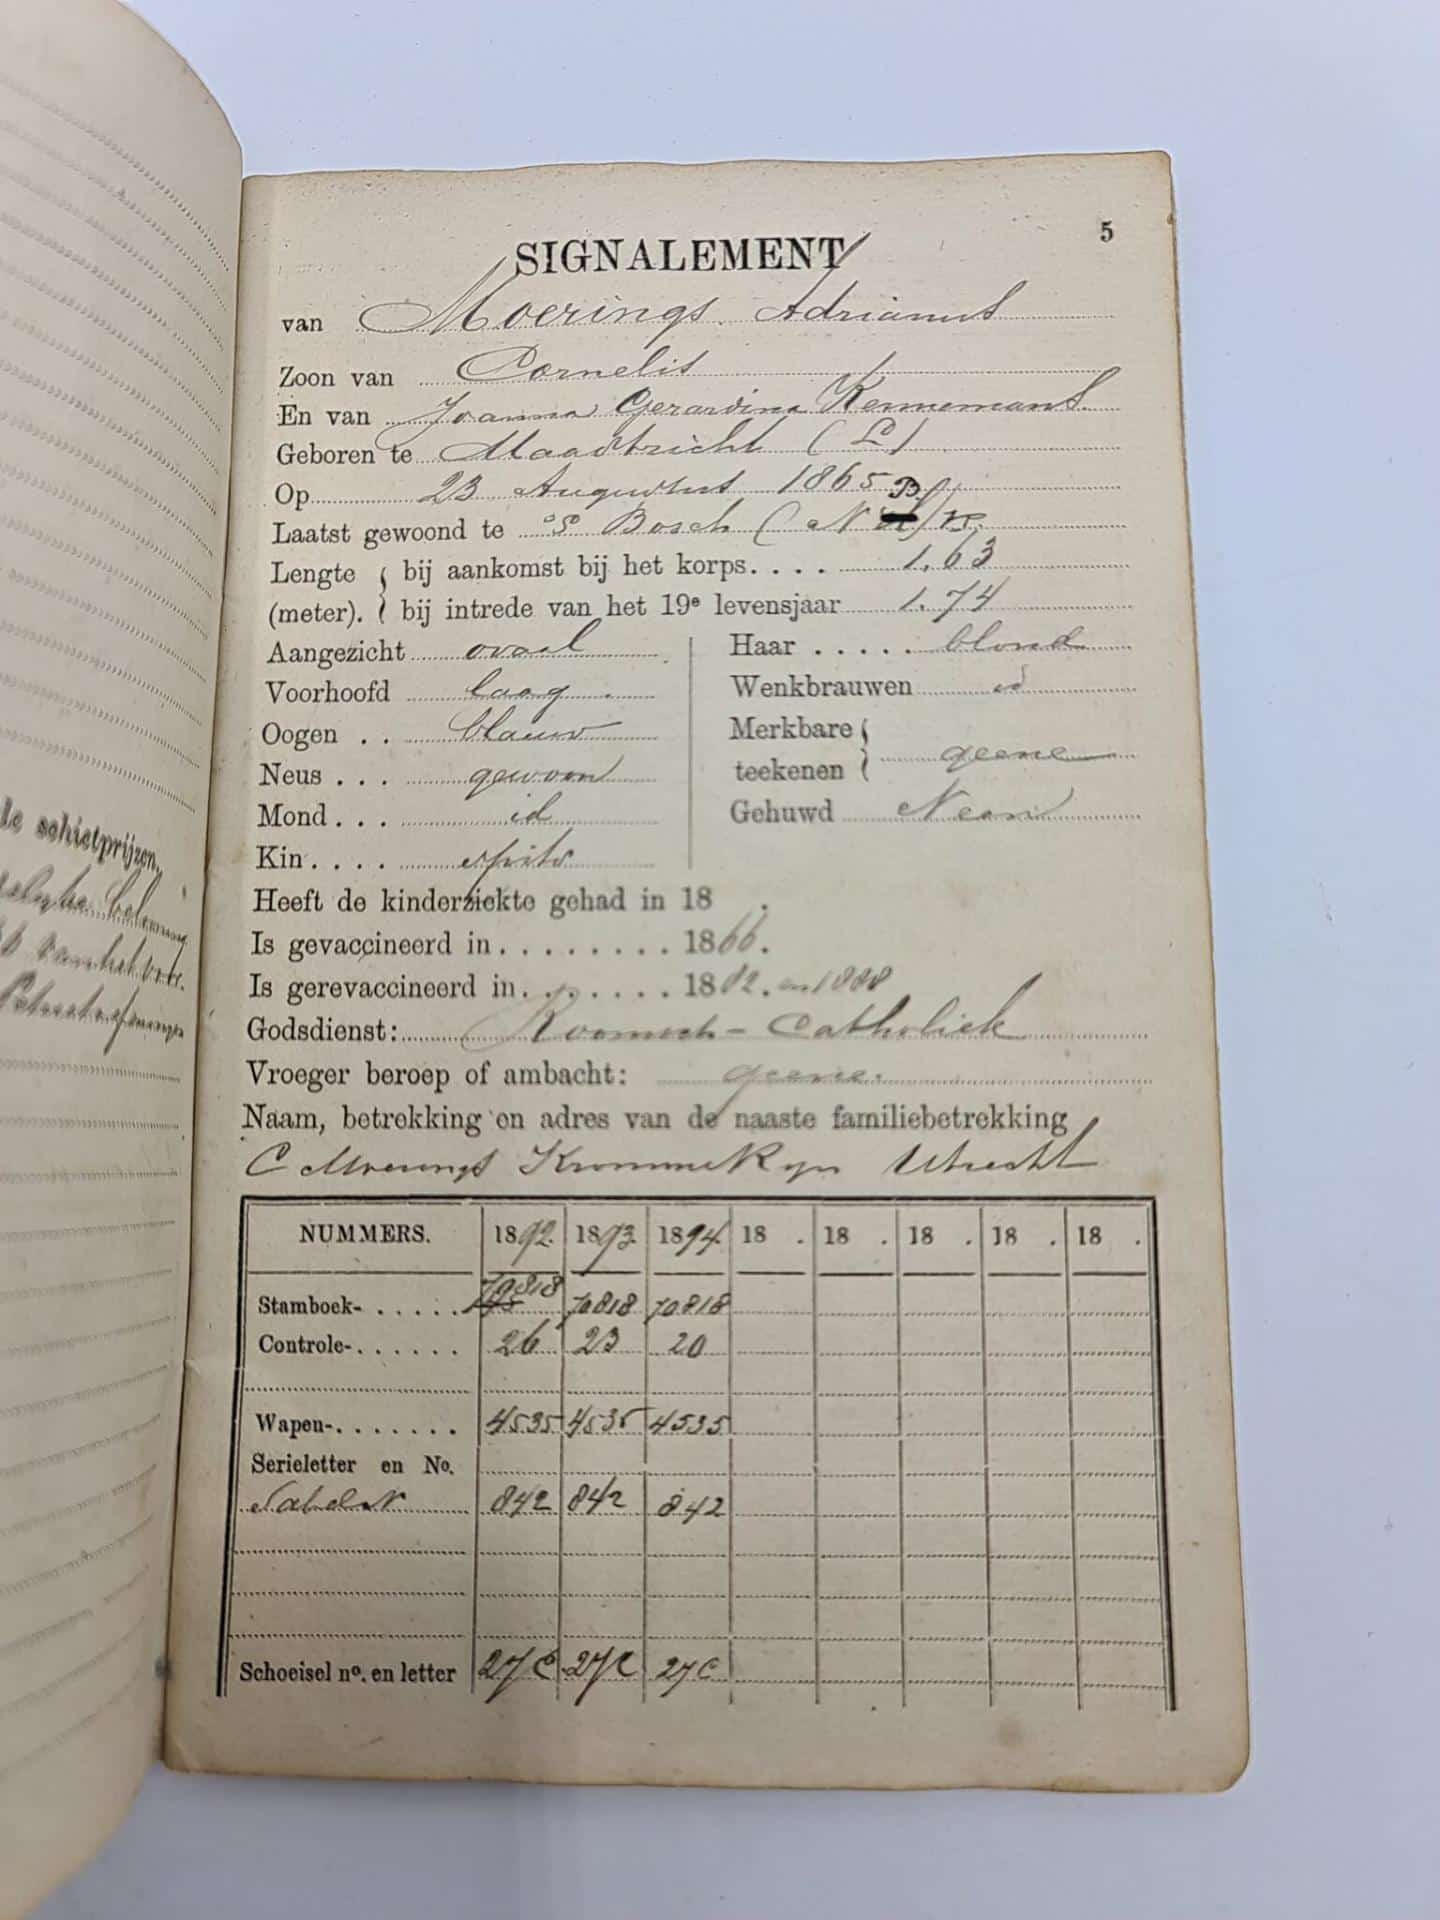 de schietprijzen.
5
SIGNALEMENT
van Moerings Adrianus
Zoon van Cornelis
En van Joanna Gerardina Kennemans
Geboren te Maastricht (L)
Op 23 Augustus 1865
Laatst gewoond te 's Bosch (N B)
Lengte (meter). bij aankomst bij het korps.... 1.63
bij intrede van het 19e levensjaar 1.74
Aangezicht ovaal
Voorhoofd laag
Oogen .. blauw
Neus ... gewoon
Mond ... id
Kin .... spits
Haar ..... blond
Wenkbrauwen id
Merkbare teekenen geene
Gehuwd Neen
Heeft de kinderziekte gehad in 18 .
Is gevaccineerd in ........ 1866.
Is gerevaccineerd in ....... 1882. en 1888
Godsdienst: Roomsch-Catholiek
Vroeger beroep of ambacht: geene.
Naam, betrekking en adres van de naaste familiebetrekking
C Moerings Kromme Rijn Utrecht
NUMMERS. 1892. 1893. 1894. 18 . 18 . 18 . 18 . 18 .
Stamboek-..... 70818 70818 70818
Controle-...... 26 23 20
Wapen-....... 4535 4535 4535
Serieletter en No.
Sabel N 842 842 842
Schoeisel no. en letter 27 C. 27 C 27 C